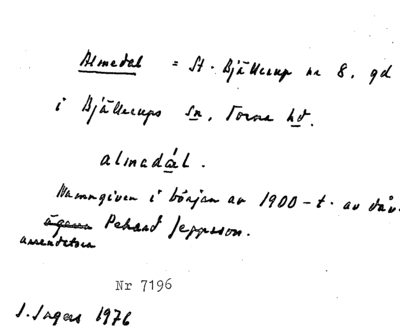 Almedal = St. Bjällerup nr 8, gd
i Bjällerups sn, Torna hd.
almedál.
Namngiven i början av 1900-t. av dåv.
ägaren Pehard Jeppsson.
arrendatorn
Nr 7196
S. Ingers 1976